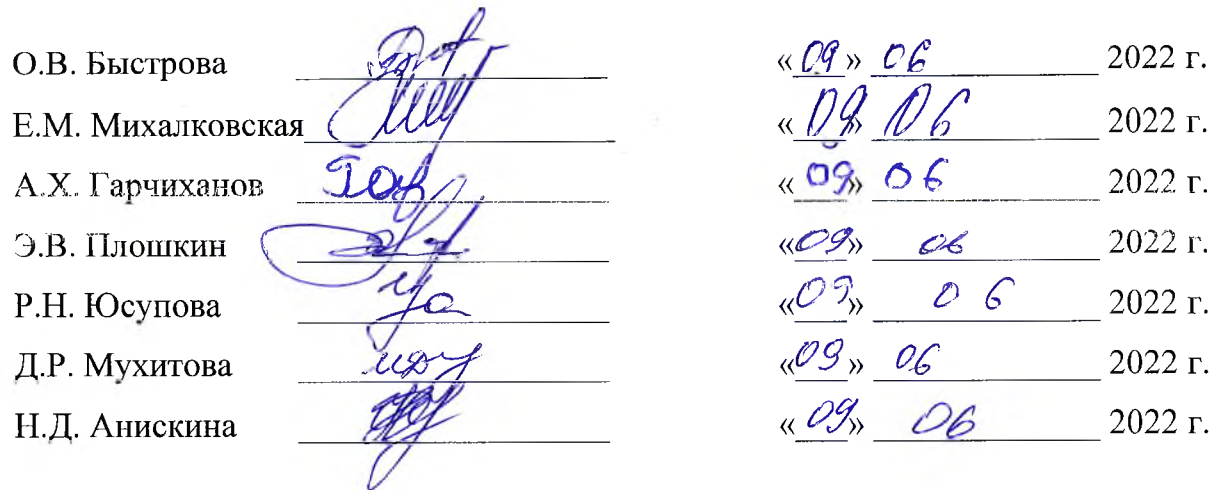 О.В. Быстрова «09» 06 2022 г.
Е.М. Михалковская «09» 06 2022 г.
А.Х. Гарчиханов «09» 06 2022 г.
Э.В. Плошкин «09» 06 2022 г.
Р.Н. Юсупова «09» 06 2022 г.
Д.Р. Мухитова «09» 06 2022 г.
Н.Д. Анискина «09» 06 2022 г.